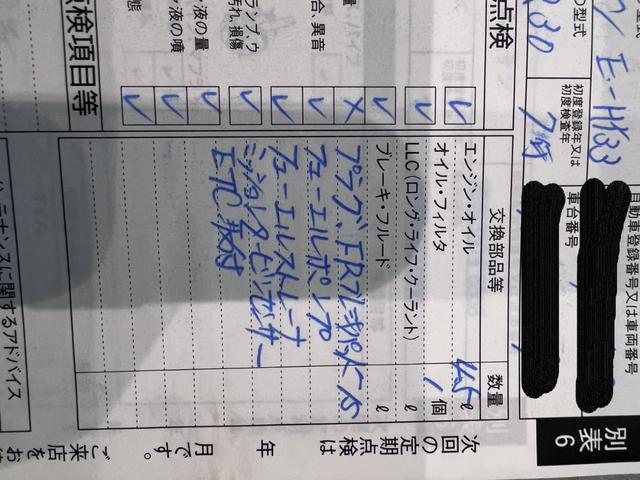 別表6
自動車登録番号又は車両番号
車台番号
E-HY33
の型式
初度登録年又は
初度検査年
7年
点検
交換部品等
数量
エンジン・オイル
4.5ℓ
オイル・フィルタ
1個
LLC(ロング・ライフ・クーラント)
ℓ
ブレーキ・フルード
ℓ
プラグ、エアフレ
フューエルポンプ
フューエルストレーナ
ミッションタービンセンサー
ETC取付
合、異音
ランプ、ウ
汚れ、損傷
液の量
液の噴
態
点検項目等
次回の定期点検は
年
月です。
ご来店をお待
メンテナンスに関するアドバイス